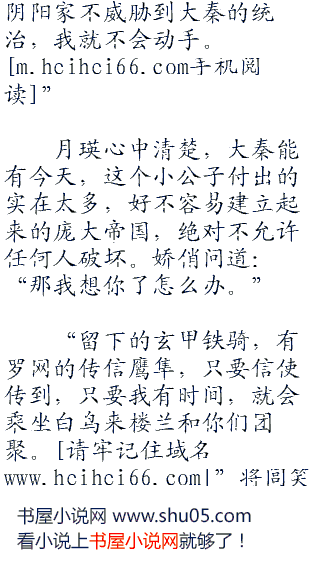 阴阳家不威胁到大秦的统
治，我就不会动手。
[m.hcihci66.com手机阅
读]”
月瑛心中清楚，大秦能
有今天，这个小公子付出的
实在太多，好不容易建立起
来的庞大帝国，绝对不允许
任何人破坏。娇俏问道：
“那我想你了怎么办。”
“留下的玄甲铁骑，有
罗网的传信鹰隼，只要信使
传到，只要我有时间，就会
乘坐白鸟来楼兰和你们团
聚。[请牢记住域名
www.hcihci66.com|”将闾笑
书屋小说网 www.shu05.com
看小说上书屋小说网就够了！